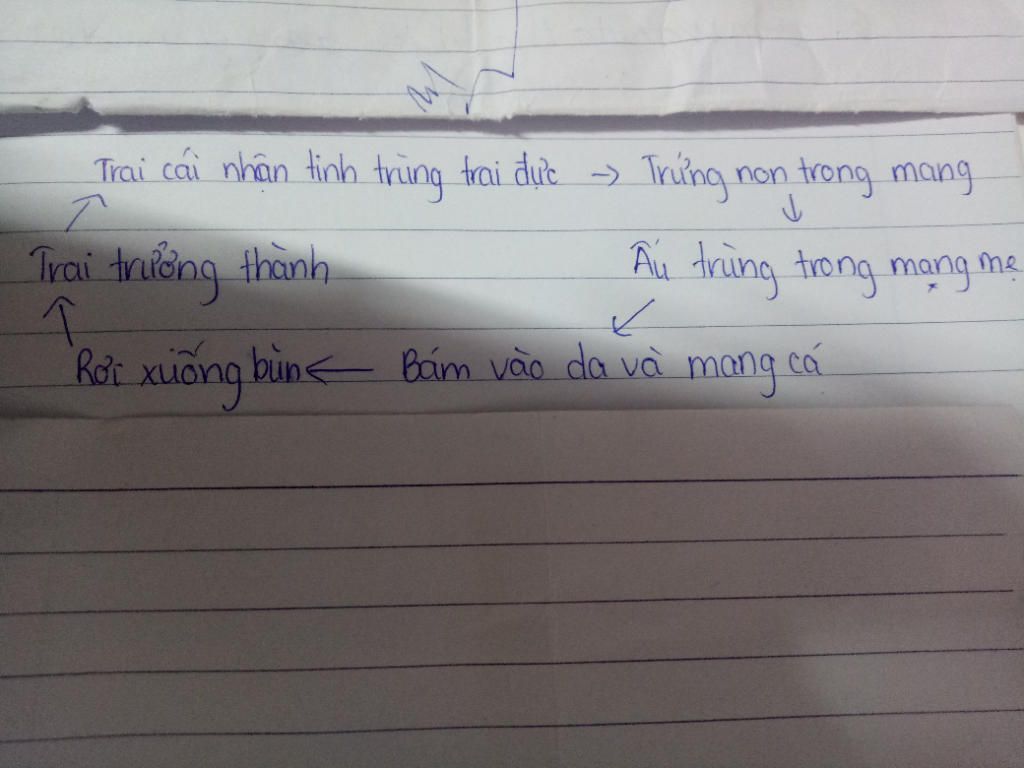 Trai cái nhận tinh trùng trai đực → Trứng non trong mang
↓
Trai trưởng thành Ấu trùng trong mang mẹ
Rơi xuống bùn ← Bám vào da và mang cá